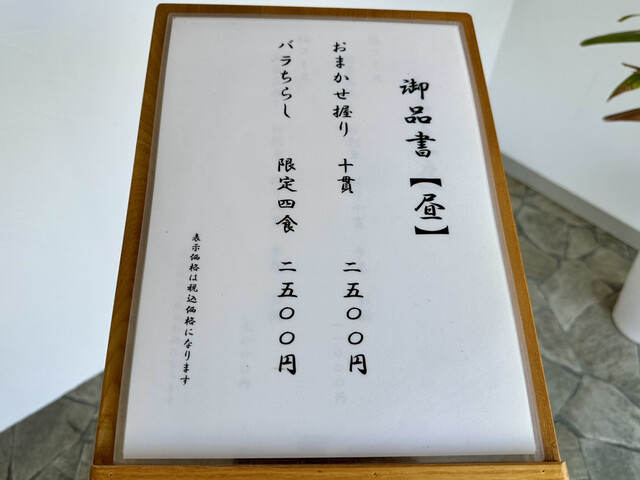 御品書【昼】
おまかせ握り 十貫 二五〇〇円
バラちらし 限定四食 二五〇〇円
表示価格は税込価格になります